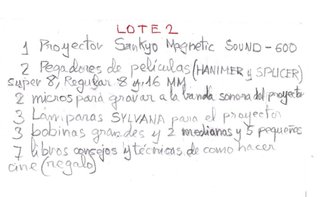 LOTE 2
1 Proyector Sankyo Magnetic SOUND-600
2 Pegadores de películas (HANIMER y SPLICER)
super 8, Regular 8 y 16 MM
2 micros para gravar a la banda sonora del proyector
3 Lámparas SYLVANA para el proyector
3 bobinas grandes y 2 medianas y 5 pequeñas
7 libros consejos y técnicas de como hacer
cine (regalo)